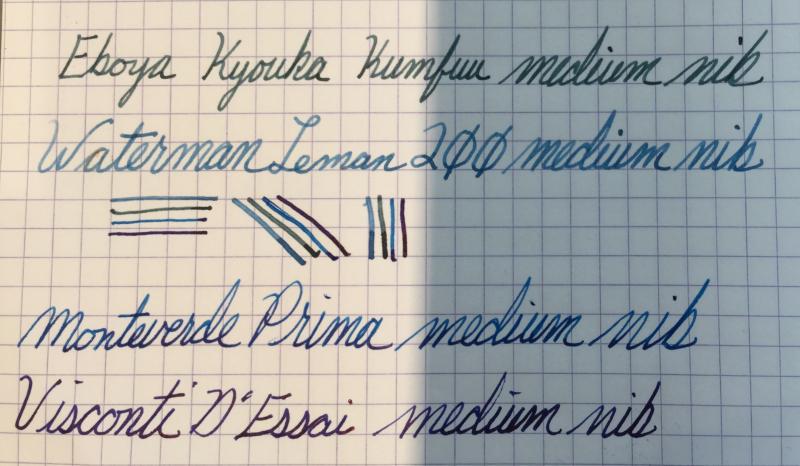 Eboya Kyouka Kumfuu medium nib
Waterman Leman 200 medium nib
Monteverde Prima medium nib
Visconti D'Essai medium nib